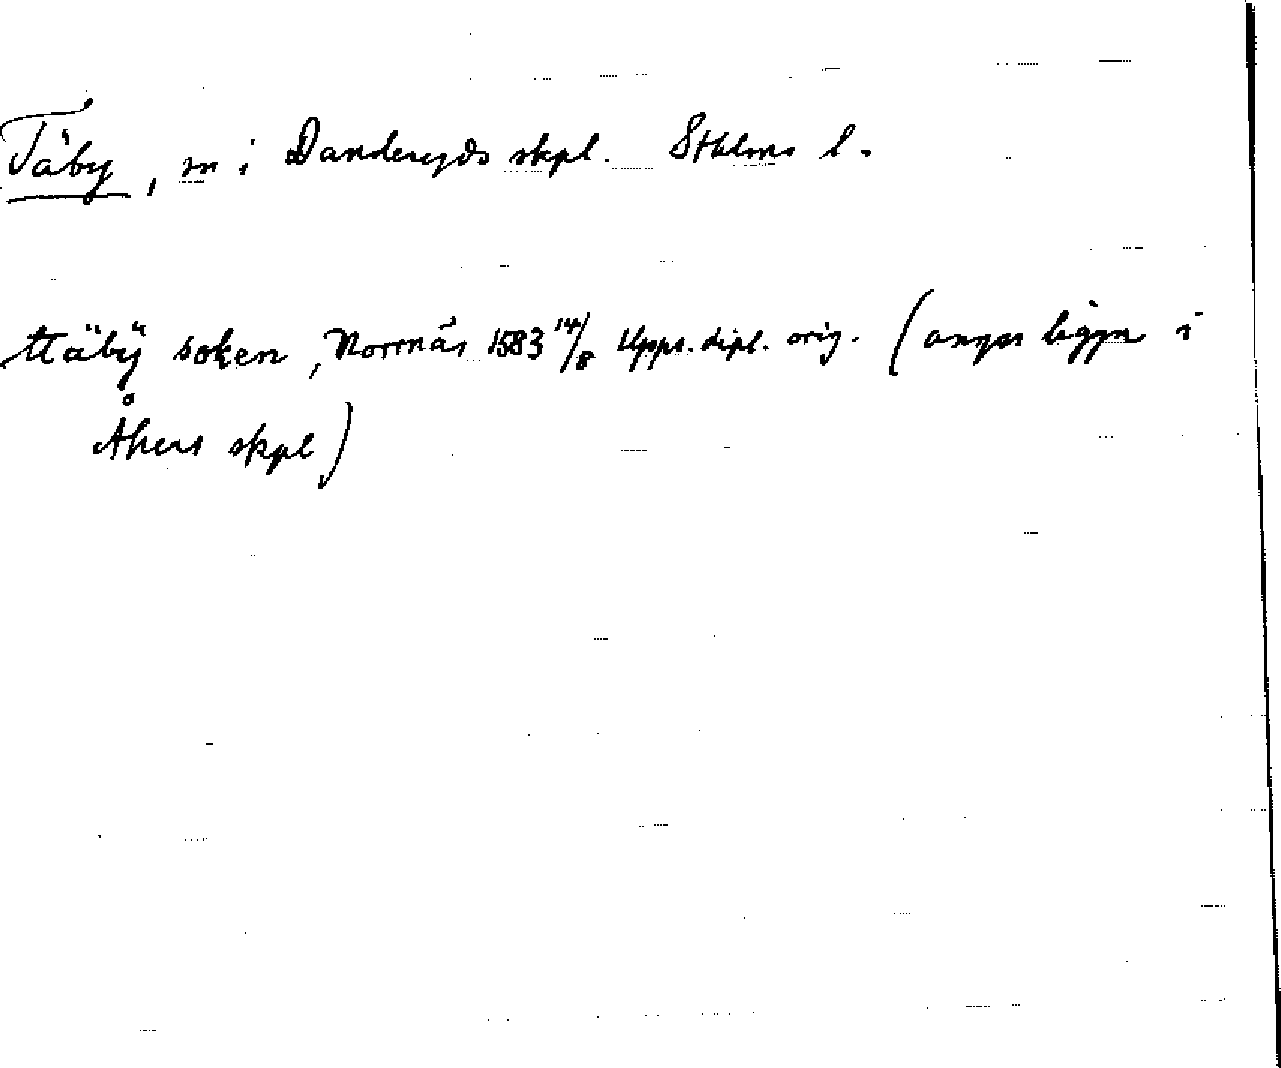 Täby, sn i Danderyds skpl. Sthlms l.
ttäbÿ soken, Norrnäs 1583 14/8 Upps. dipl. orig. (anges liggn i
Åkers skpl)